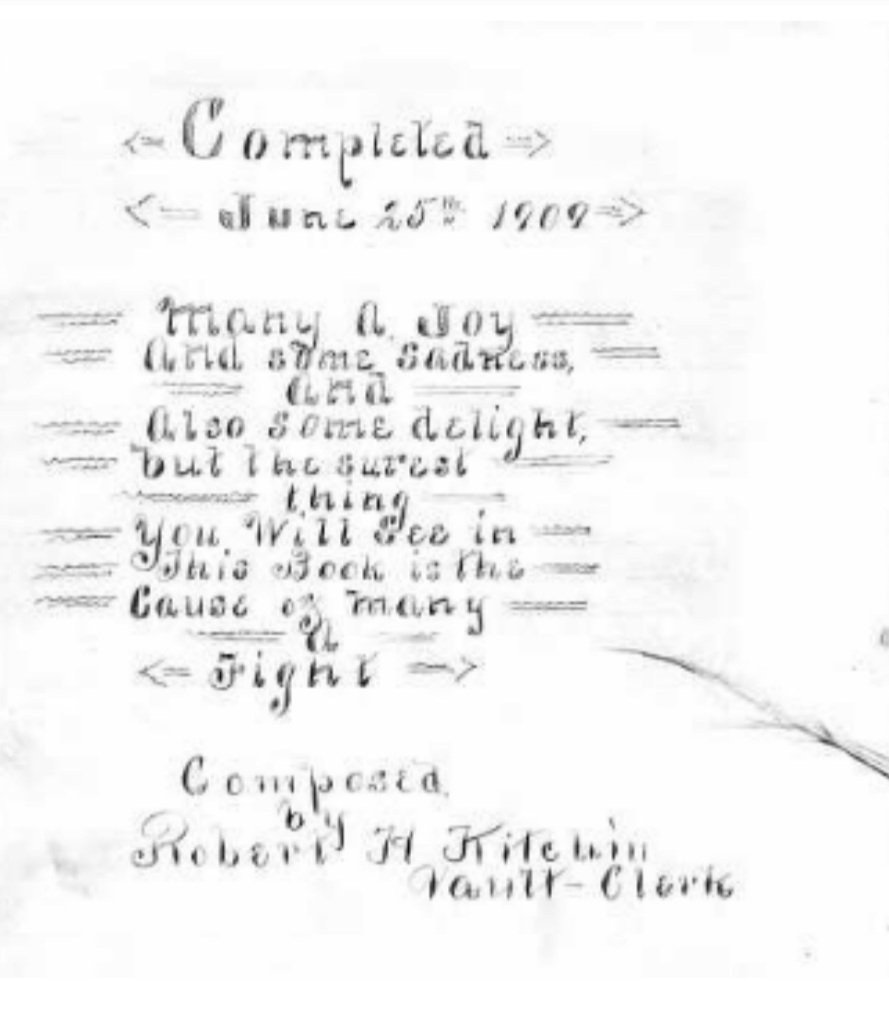 Completed
June 25th 1909
Many a Joy
And some Sadness,
And
Also some delight,
but the surest
thing
You Will See in
This Book is the
Cause of many
a
Fight
Composed
by
Robert H Kitchin
Vault-Clerk